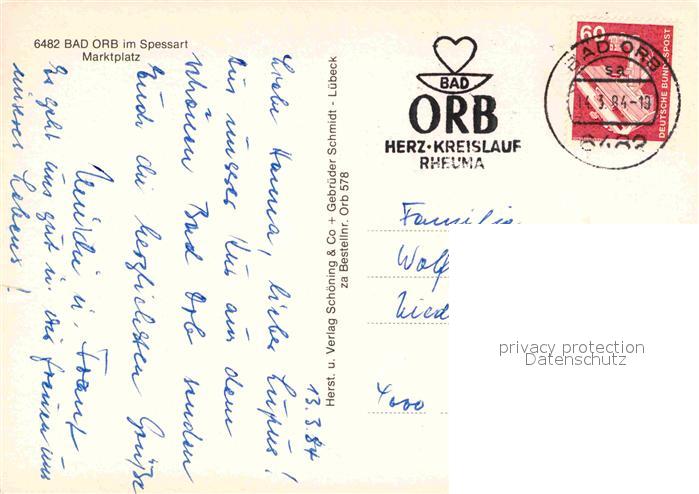 6482 BAD ORB im Spessart
Marktplatz
13.3.84
Liebe Hanna, lieber Lupus!
Aus unserer Kur aus dem
schönen Bad Orb senden
Euch die herzlichsten Grüße
u. Franz
Es geht uns gut u. wir freuen uns
unseres Lebens!
Herst. u. Verlag Schöning & Co + Gebrüder Schmidt - Lübeck
za Bestellnr. Orb 578
BAD
ORB
HERZ·KREISLAUF
RHEUMA
60
DEUTSCHE BUNDESPOST
BAD ORB
sa
14.3.84-19
6482
Familie
Wolf
4000
privacy protection
Datenschutz